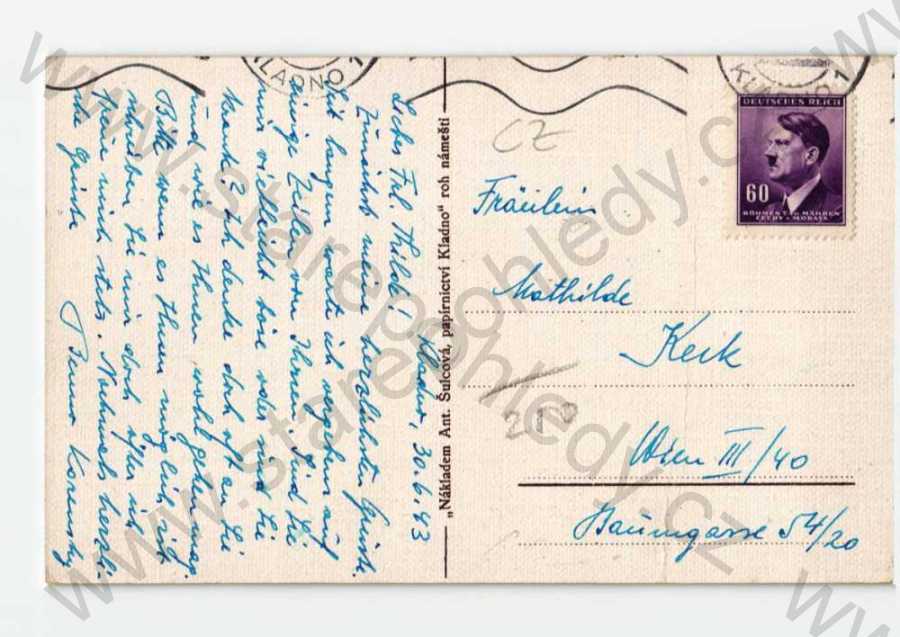 KLADNO 1
KLADNO 1
DEUTSCHES REICH
60
BÖHMEN U. MÄHREN
ČECHY A MORAVA
CZ
Kladno, 30.6.43
Liebes Frl. Thilde!
Zunächst meine herzlichsten Grüsse.
Seit langem warte ich vergebens auf
einige Zeilen von Ihnen. Sind Sie
mir vielleicht böse oder sind Sie
krank? Ich denke doch oft an Sie
und will es Ihnen
Bitte wenn es Ihnen möglich ist
schreiben Sie mir doch öfter ich
freue mich stets. Nochmals herzli-
che Grüsse
„Nákladem Ant. Šulcová, papírnictví Kladno“ roh náměstí
Fräulein
Mathilde
Keck
Wien III/40
Baumgasse 54/20
www.starepohledy.cz
www.starepohledy.cz